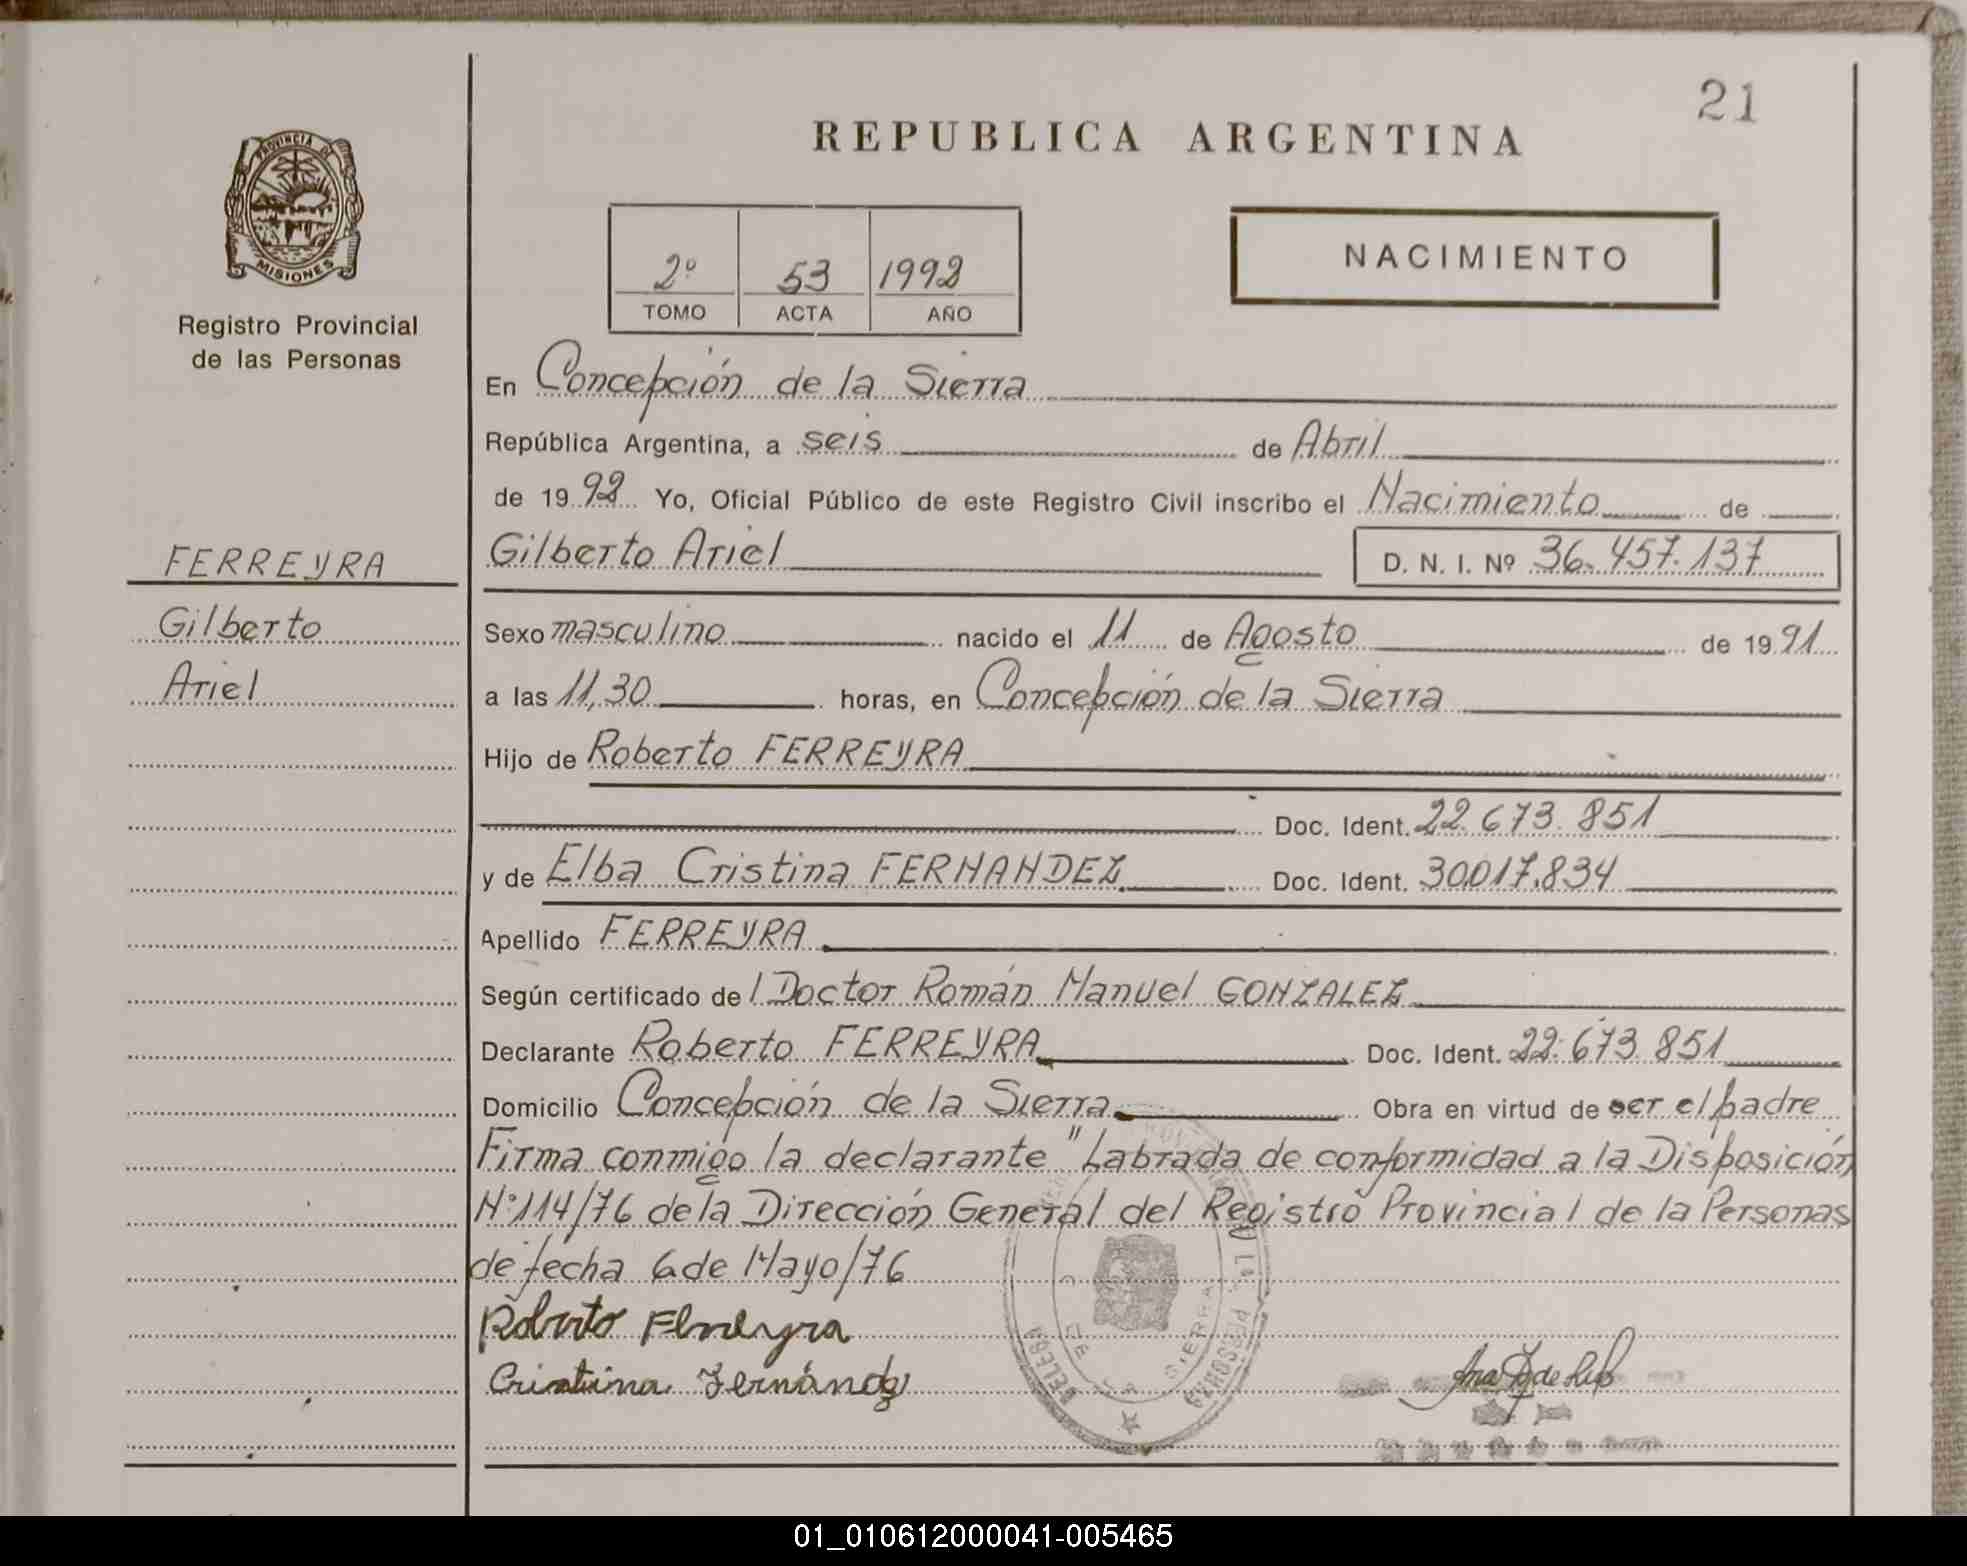 21
REPUBLICA ARGENTINA
PROVINCIA DE
MISIONES
Registro Provincial
de las Personas
2º 53 1992
TOMO ACTA AÑO
NACIMIENTO
En Concepción de la Sierra
República Argentina, a seis de Abril
de 1992 Yo, Oficial Público de este Registro Civil inscribo el Nacimiento de
FERREYRA
Gilberto Ariel D. N. I. Nº 36.457.137
Gilberto
Sexo masculino nacido el 11 de Agosto de 1991
Ariel
a las 11,30 horas, en Concepción de la Sierra
Hijo de Roberto FERREYRA
Doc. Ident. 22.673.851
y de Elba Cristina FERNANDEZ Doc. Ident. 30.017.834
Apellido FERREYRA
Según certificado del Doctor Román Manuel GONZALEZ
Declarante Roberto FERREYRA Doc. Ident. 22.673.851
Domicilio Concepción de la Sierra Obra en virtud de ser el padre
Firma conmigo la declarante "Labrada de conformidad a la Disposición
Nº114/76 de la Dirección General del Registro Provincial de la Personas
de fecha 6 de Mayo/76
Roberto Ferreyra
Cristina Fernández
01_010612000041-005465